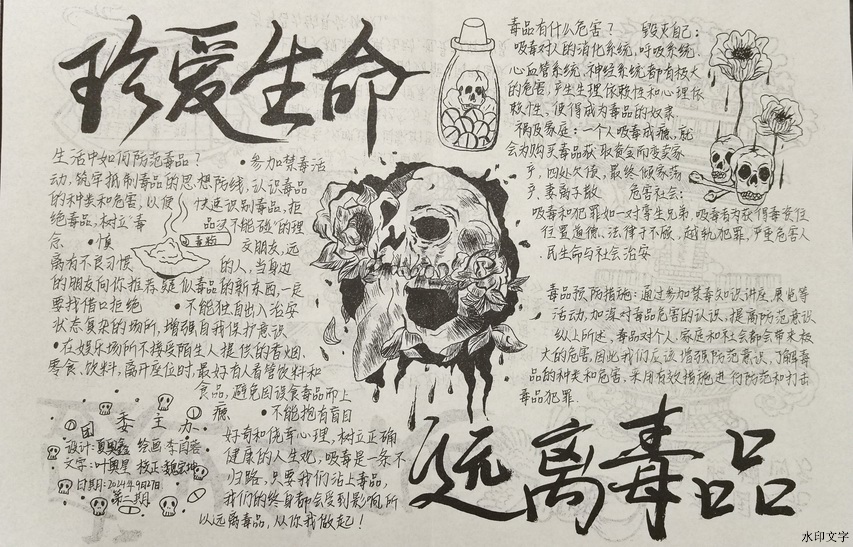 珍爱生命
生活中如何防范毒品？
•参加禁毒活
动，筑牢抵制毒品的思想防线，认识毒品
的种类和危害，以便 快速识别毒品，拒
绝毒品，树立“毒 品不能碰”的理
念 •慎 交朋友，远
离有不良习惯 的人，当身边
的朋友向你推荐疑似毒品的新东西，一定
要找借口拒绝 •不能独自出入治安
状态复杂的场所，增强自我保护意识
•在娱乐场所不接受陌生人提供的香烟、
零食、饮料，离开座位时，最好有人看管饮料和
食品，避免因误食毒品而上
瘾 •不能抱有盲目
好奇和侥幸心理，树立正确
健康的人生观，吸毒是一条不
归路，只要我们沾上毒品，
我们的终身都会受到影响，所
以远离毒品，从你我做起！
团委主办
设计： 绘画：李
文字：叶 校正：
日期：2024年9月27日
第二期
毒品有什么危害？ 毁灭自己：
吸毒对人的消化系统，呼吸系统，
心血管系统，神经系统都有极大
的危害，产生生理依赖性和心理依
赖性，使得成为毒品的奴隶
祸及家庭：一个人吸毒成瘾，就
会为购买毒品获取资金而变卖家
产，四处欠债，最终倾家荡
产、妻离子散 危害社会：
吸毒和犯罪如一对孪生兄弟，吸毒者为获得毒资往
往置道德、法律于不顾，越轨犯罪，严重危害人
民生命与社会治安
毒品预防措施：通过参加禁毒知识讲座、展览等
活动，加深对毒品危害的认识，提高防范意识
纵上所述，毒品对个人、家庭和社会都会带来极
大的危害，因此我们应该增强防范意识，了解毒
品的种类和危害，采用有效措施进行防范和打击
毒品犯罪.
远离毒品
水印文字